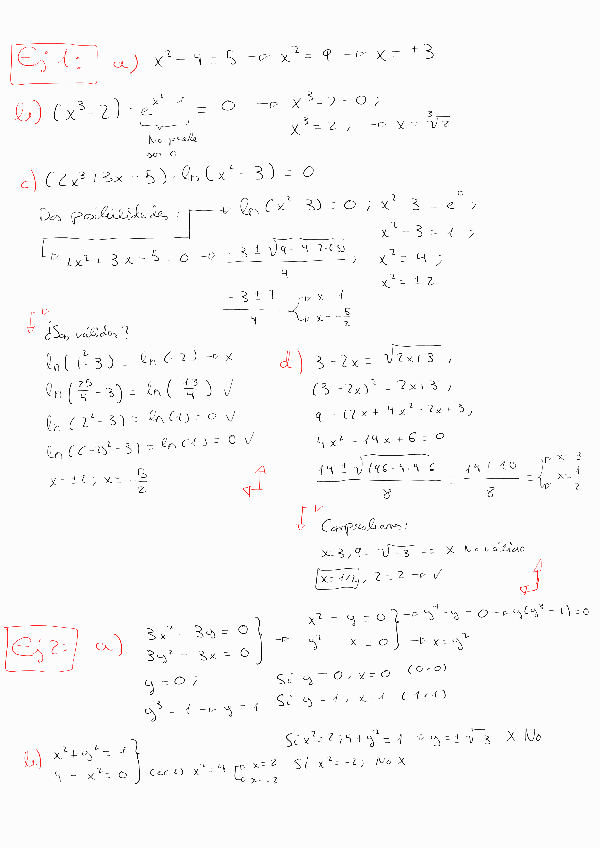 Ej 1: a) x² - 4 = 5 → x² = 9 → x = ±3
b) (x³ - 2) · = 0 → x³ - 2 = 0 ;
No puede
ser 0
x³ = 2 , → x = ∛2
c) (2x² + 3x - 5) · ln(x² - 3) = 0
Dos posibilidades : → ln(x² - 3) = 0 ; x² - 3 = e⁰ ;
x² - 3 = 1 ;
2x² + 3x - 5 = 0 → x² = 4 ;
x = ±2
-3 ± 7 / 4 → x = 1 → x = -5/2
¿Son válidos?
ln(1² - 3) = ln(-2) → x
ln(25/4 - 3) = ln(13/4) ✓
ln(2² - 3) = ln(1) = 0 ✓
ln((-2)² - 3) = ln(1) = 0 ✓
x = ±2 ; x = -5/2
d) 3 - 2x = √2x+3 ,
(3 - 2x)² = 2x + 3 ,
9 - 12x + 4x² = 2x + 3 ,
4x² - 14x + 6 = 0
14 ± √196 - 4·4·6 / 8 = 14 ± 10 / 8 = → x = 3 → x = 1/2
Comprobamos:
x = 3, → x No válido
x = 1/2 , 2 = 2 → ✓
Ej 2: a) 3x² - 3y = 0
3y² - 3x = 0
→ x² - y = 0
y² - x = 0
→ y⁴ - y = 0 → y(y³ - 1) = 0
→ x = y²
y = 0 ; Si y = 0, x = 0 (0,0)
y³ - 1 → y = 1 Si y = 1, x = 1 (1,1)
b) x² + y² = 1
4 - x² = 0
x² = 4 → x = 2 → x = -2
Si x² = 2 ; 4 + y² = 1 → y = ±√-3 X No
Si x² = -2 ; No X